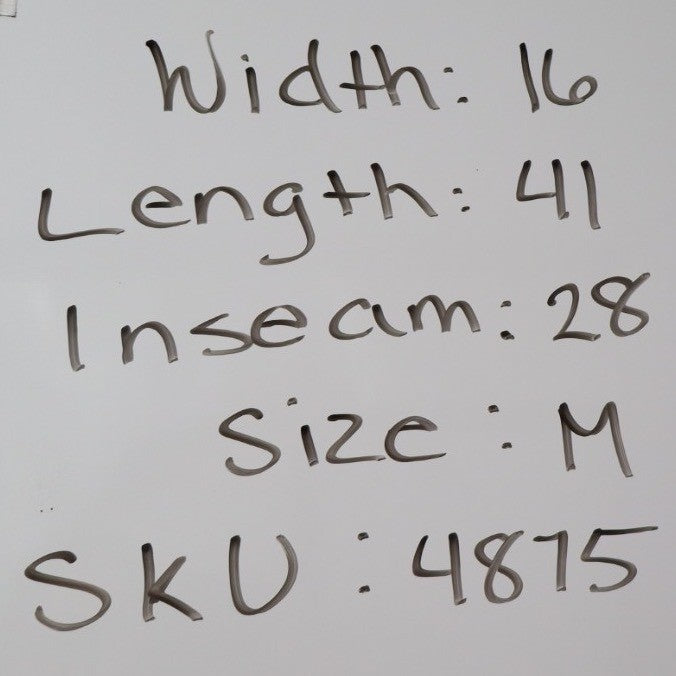 Width: 16
Length: 41
Inseam: 28
Size: M
SKU: 4875